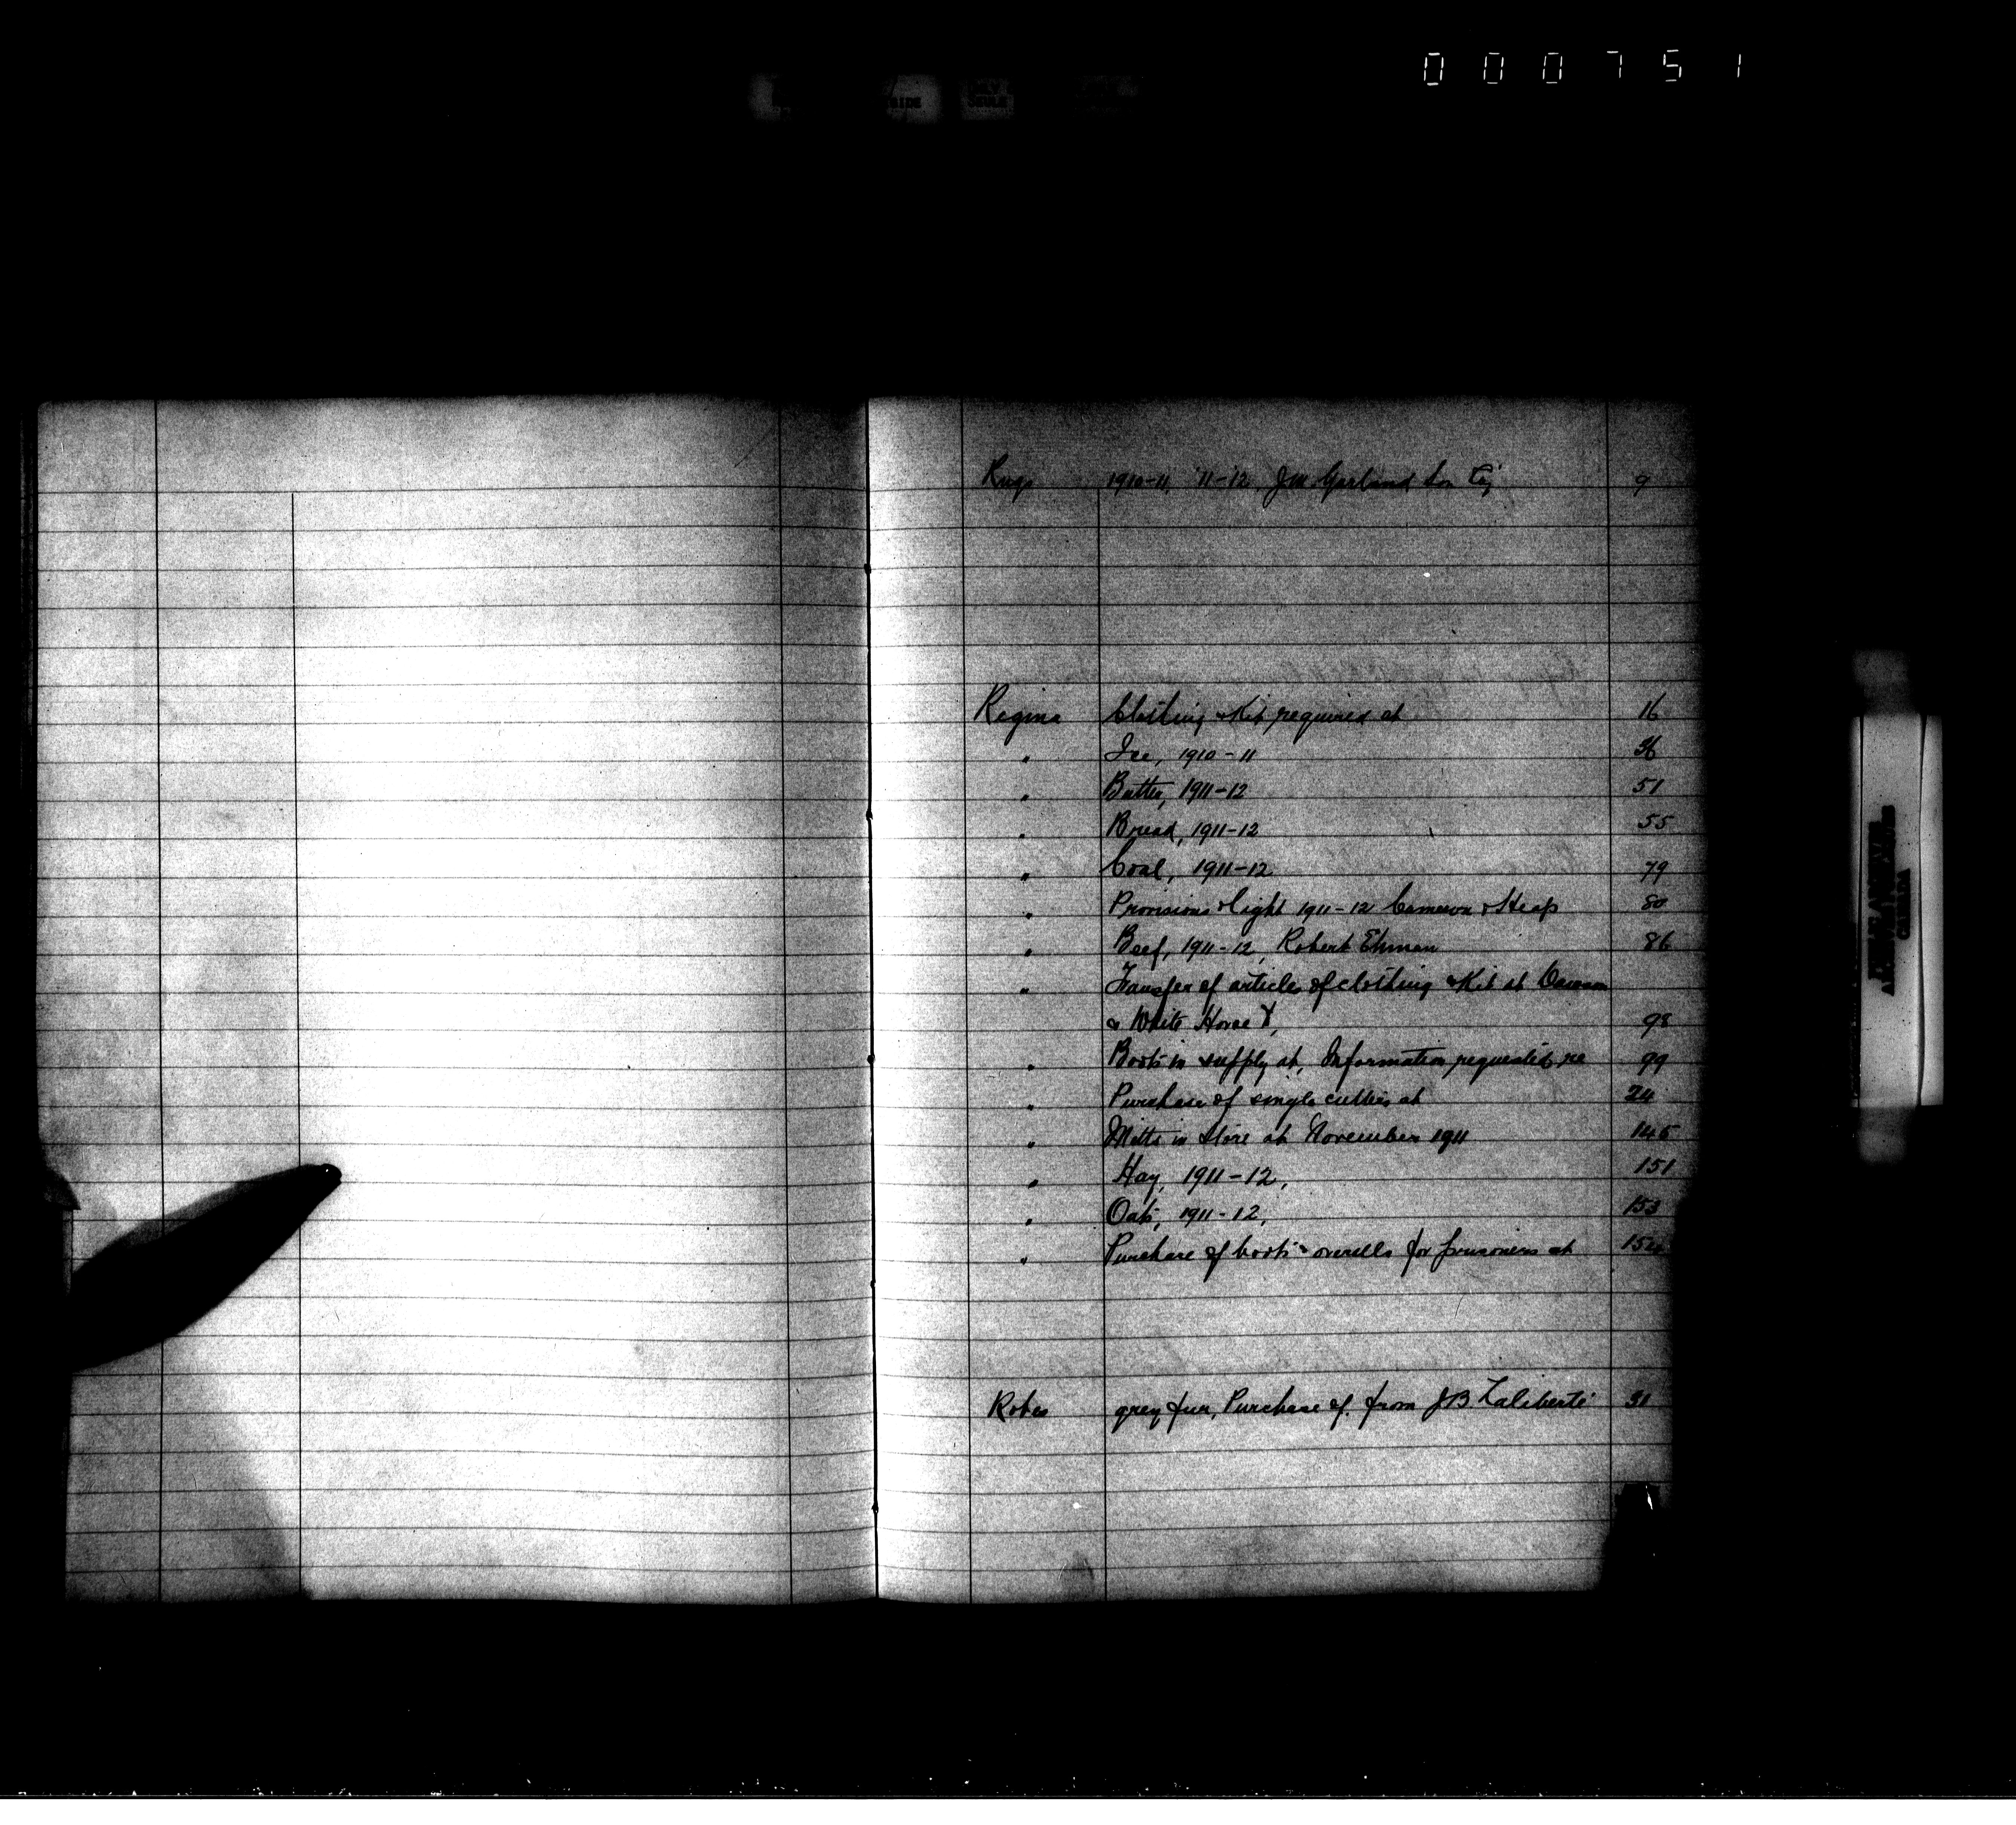 000751
Rugs 1910-11, '11-12, J.M. Garland Son Coy 9
Regina Clothing & Kit required at 16
" Ice, 1910-11 36
" Butter, 1911-12 51
" Bread, 1911-12 55
" Coal, 1911-12 79
" Provisions & light 1911-12 Cameron & Heap 80
" Beef, 1911-12, Robert Ehman 86
" Transfer of articles of clothing & Kit at Dawson
& White Horse 98
" Boots in supply at, Information requested re 99
" Purchase of single cutters at 24
" Mitts in Store at November 1911 145
" Hay, 1911-12, 151
" Oats, 1911-12, 153
" Purchase of boots & overalls for prisoners at
Robes grey fur, Purchase of. from J B Laliberté 31